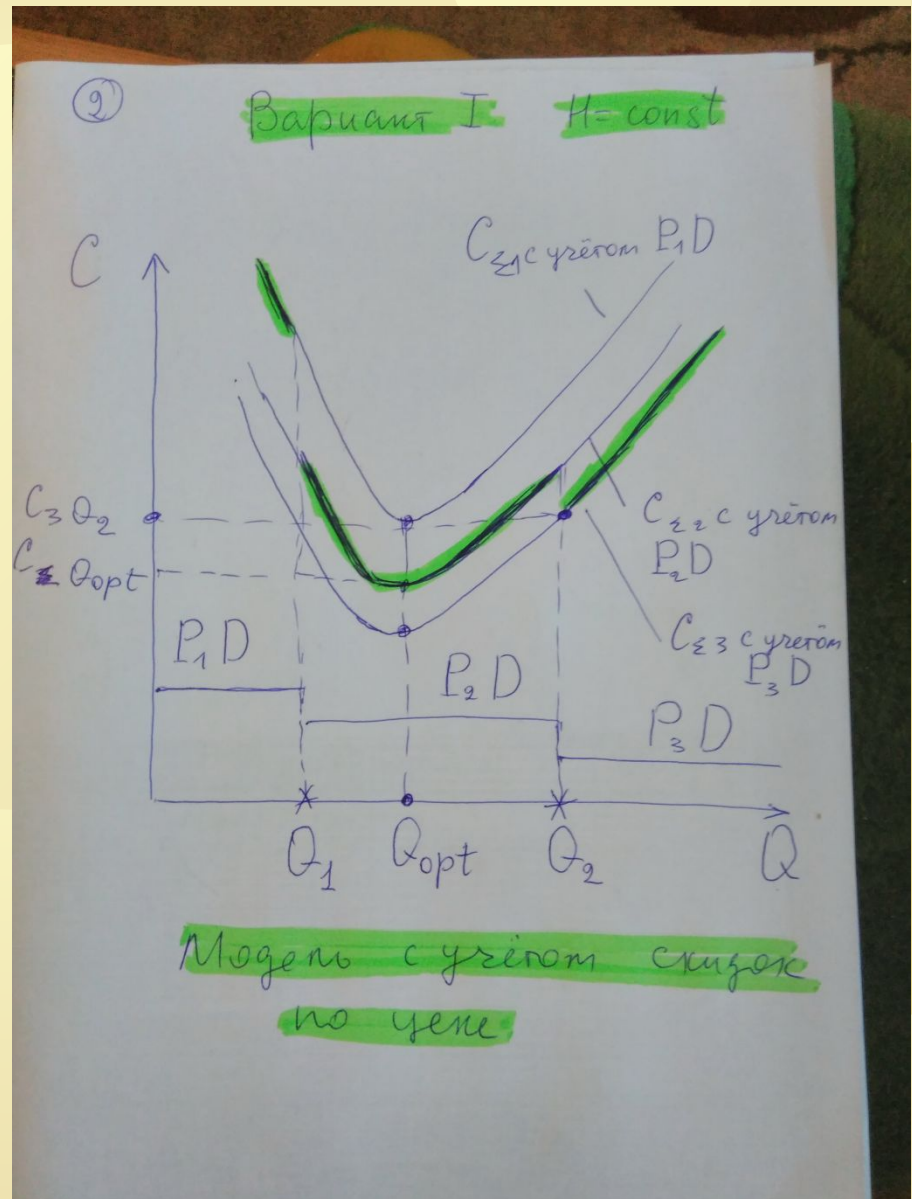 2
Вариант I H = const
C
CΣ1 с учётом P1D
C3 Q2
CΣ2 с учётом
P2D
C Qopt
CΣ3 с учетом
P3D
P1D
P2D
P3D
Q1 Qopt Q2 Q
Модель с учётом скидок
по цене